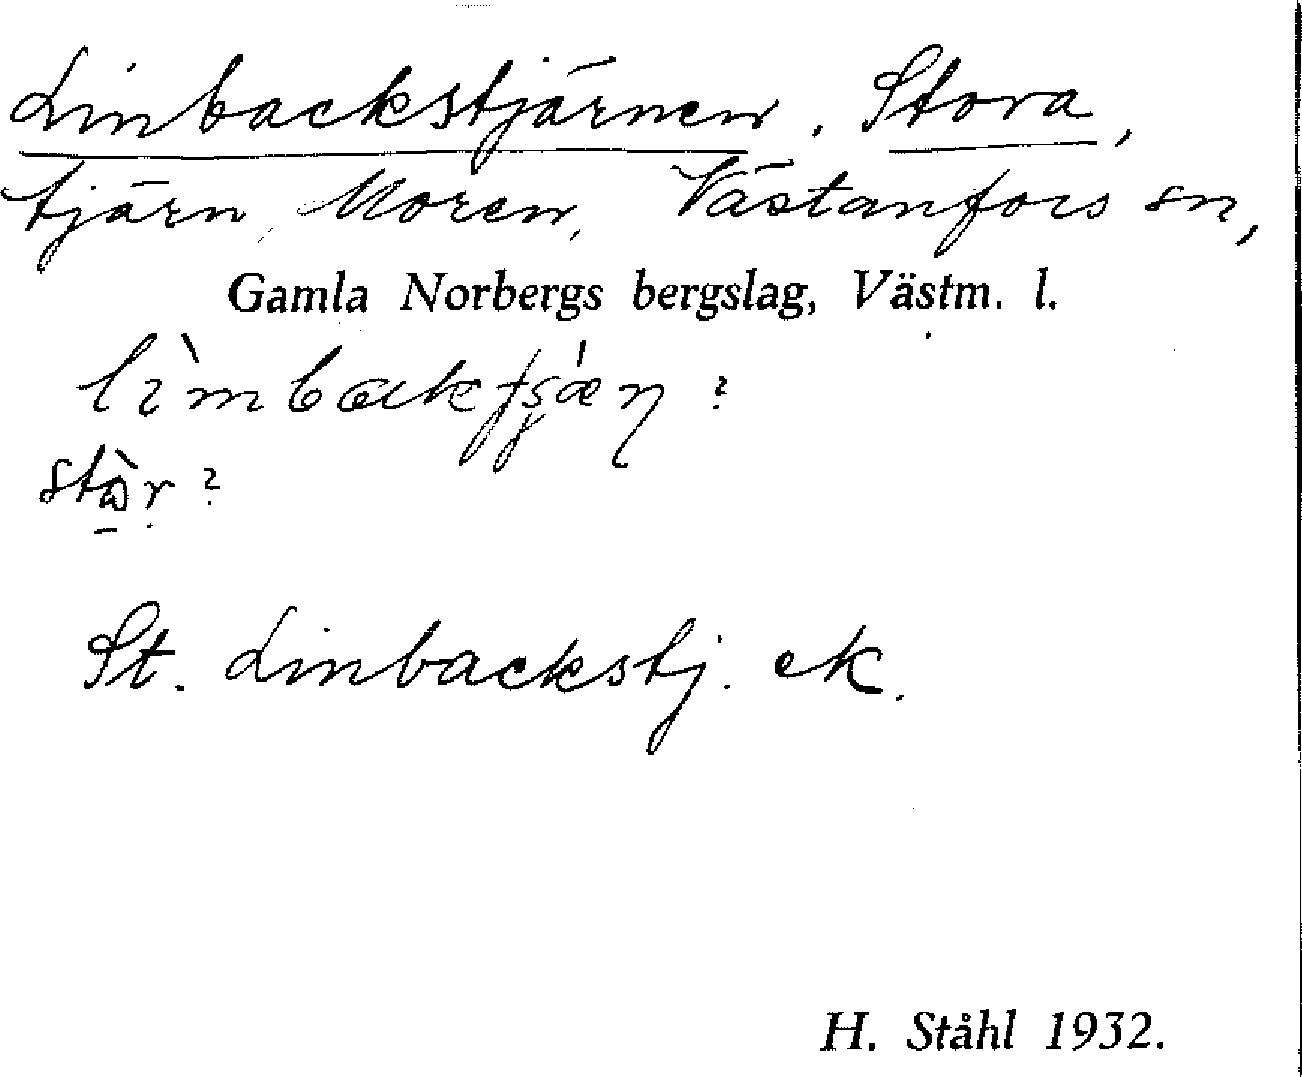 Linbackstjärnen, Stora,
tjärn, Moren, Västanfors sn,
Gamla Norbergs bergslag, Västm. l.
St. Linbackstj. ek.
H. Ståhl 1932.